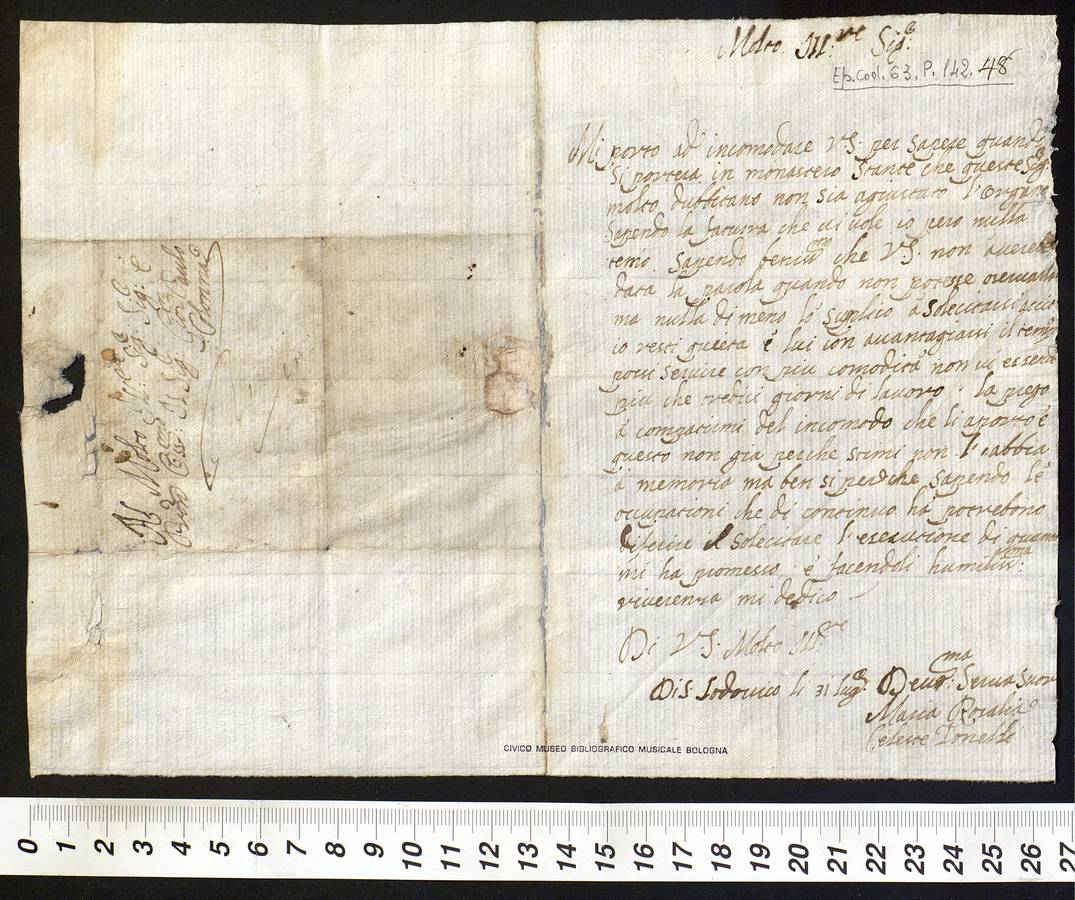 Molto Ill:re Sig:e
Ep. Cod. 63. P. 142. 48
Mi porto ad incomodare V.S. per sapere quando
si porterà in monastero stante che queste Sig:e
molto dubbitano non sia agiustato l'organo
sapendo la fatura che vi vole io però nulla
temo sapendo beniss:mo che V.S. non averebe
data la parola quando non potesse
ma nulla di meno lo suplico à solecitarsi acciò
io resti quieta è lui con avantagiarsi il tempo
possi servire con più comodità non vi essendo
più che redici giorni di lavoro. La prego
à compatirmi del incomodo che li aporto è
questo non già perche stimi non l'abbia
à memoria ma ben si perche sapendo le
occupationi che di continuo hà potrebono
diferire il solecitare l'esecutione di quanto
mi ha promesso è facendoli humiliss:ma
riverenza mi dedico
Di V.S. Molto Ill:re
Di S. Lodovico li 31 lug: Devot:ma Serva Suor
Maria Rosalia
Celeste Tonelli
Al Molto Ill:re Sig: Sig:
Pron Coss: Il Sig: Gio: Paulo
Colonna
CIVICO MUSEO BIBLIOGRAFICO MUSICALE BOLOGNA
0 1 2 3 4 5 6 7 8 9 10 11 12 13 14 15 16 17 18 19 20 21 22 23 24 25 26 27